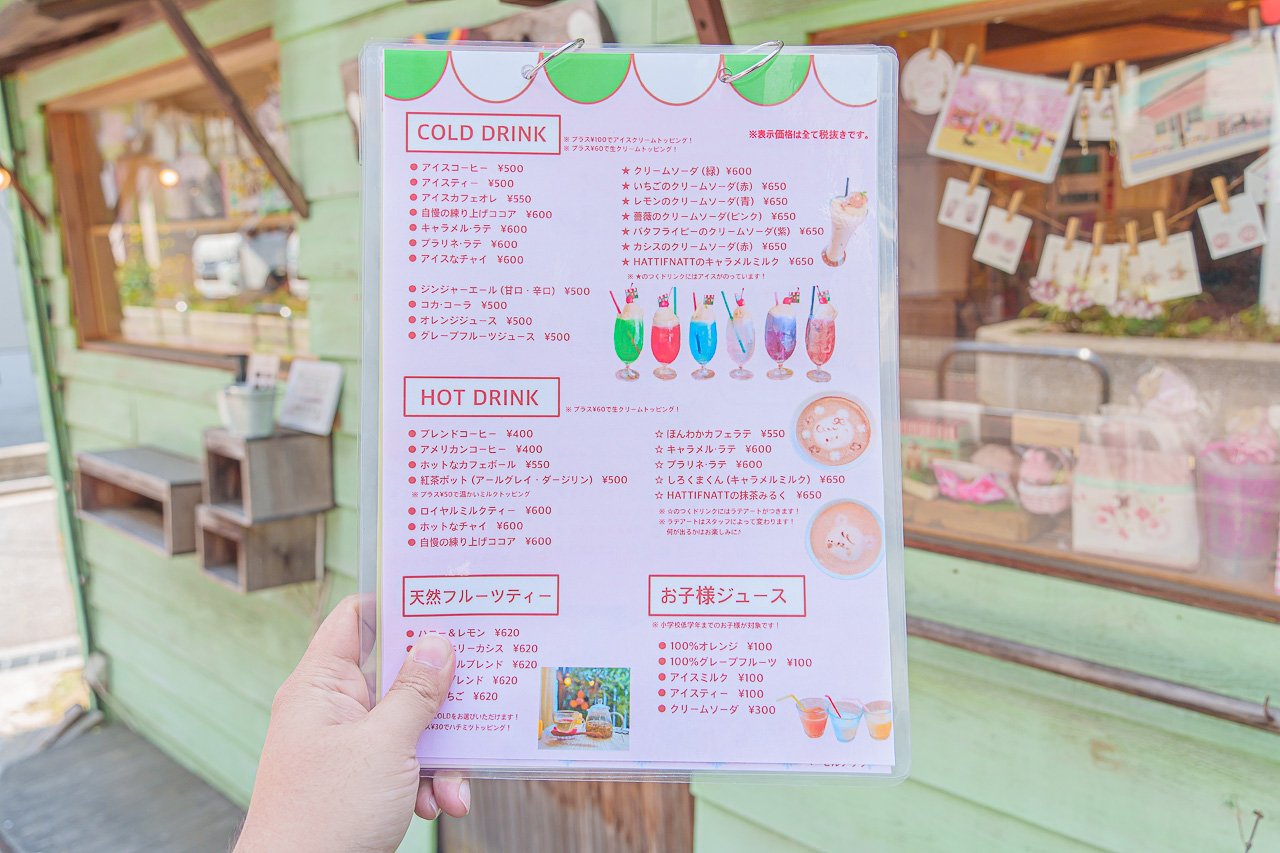 COLD DRINK
※ プラス¥100でアイスクリームトッピング！
※ プラス¥60で生クリームトッピング！
※表示価格は全て税抜きです。
アイスコーヒー ¥500
アイスティー ¥500
アイスカフェオレ ¥550
自慢の練り上げココア ¥600
キャラメル・ラテ ¥600
プラリネ・ラテ ¥600
アイスなチャイ ¥600
ジンジャーエール (甘口・辛口) ¥500
コカ・コーラ ¥500
オレンジジュース ¥500
グレープフルーツジュース ¥500
★ クリームソーダ (緑) ¥600
★ いちごのクリームソーダ(赤) ¥650
★ レモンのクリームソーダ(青) ¥650
★ 薔薇のクリームソーダ(ピンク) ¥650
★ バタフライピーのクリームソーダ(紫) ¥650
★ カシスのクリームソーダ(赤) ¥650
★ HATTIFNATTのキャラメルミルク ¥650
※ ★のつくドリンクにはアイスがのっています！
HOT DRINK
※ プラス¥60で生クリームトッピング！
ブレンドコーヒー ¥400
アメリカンコーヒー ¥400
ホットなカフェボール ¥550
紅茶ポット (アールグレイ・ダージリン) ¥500
※ プラス¥50で温かいミルクトッピング
ロイヤルミルクティー ¥600
ホットなチャイ ¥600
自慢の練り上げココア ¥600
☆ ほんわかカフェラテ ¥550
☆ キャラメル・ラテ ¥600
☆ プラリネ・ラテ ¥600
☆ しろくまくん (キャラメルミルク) ¥650
☆ HATTIFNATTの抹茶みるく ¥650
※ ☆のつくドリンクにはラテアートがつきます！
※ ラテアートはスタッフによって変わります！
何が出るかはお楽しみに♪
天然フルーツティー
ハニー＆レモン ¥620
リーカシス ¥620
ルブレンド ¥620
レンド ¥620
ちご ¥620
COLDをお選びいただけます！
¥30でハチミツトッピング！
お子様ジュース
※ 小学校低学年までのお子様が対象です！
100%オレンジ ¥100
100%グレープフルーツ ¥100
アイスミルク ¥100
アイスティー ¥100
クリームソーダ ¥300